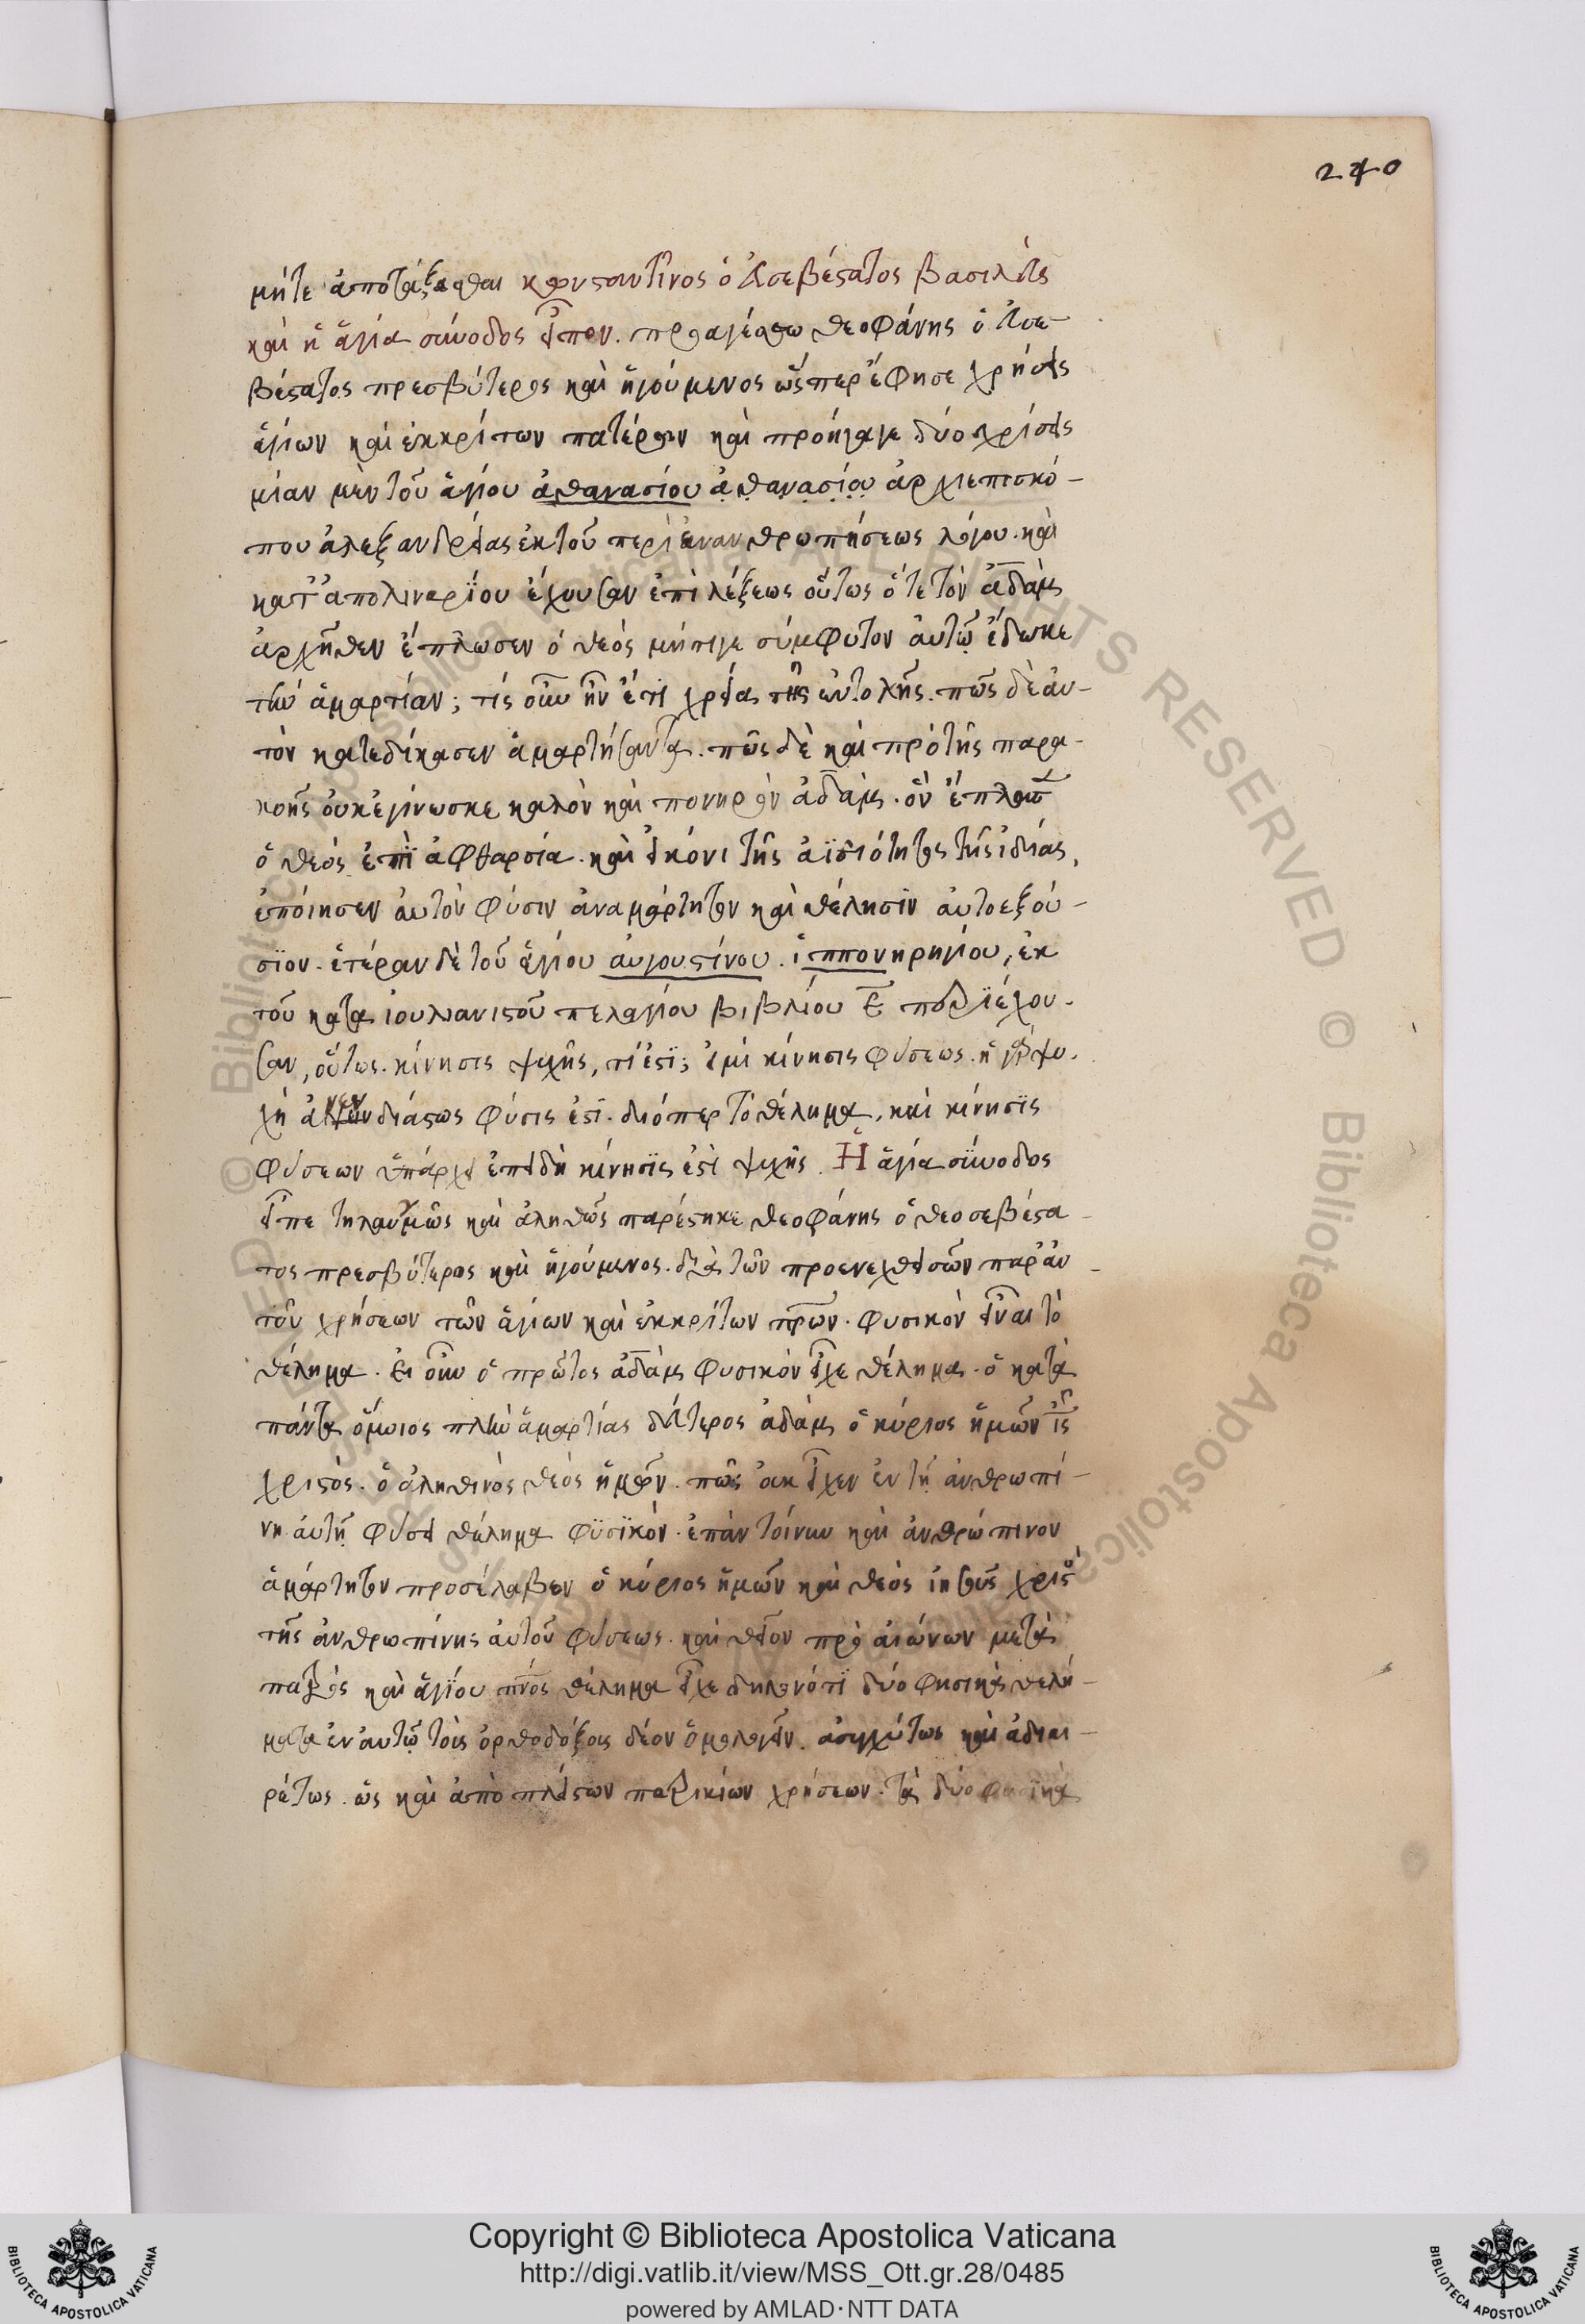 240
μήτε ἀποτάξασθαι κωνσταντῖνος ὁ εὐσεβέστατος βασιλεὺς
καὶ ἡ ἁγία σύνοδος εἶπον. προαγέσθω θεοφάνης ὁ εὐσε-
βέστατος πρεσβύτερος καὶ ἡγούμενος ὥσπερ ἔφησε χρήσεις
ἁγίων καὶ ἐκκρίτων πατέρων καὶ προήγαγε δύο χρίσεις
μίαν μὲν τοῦ ἁγίου ἀθανασίου ἀθανασίου ἀρχιεπισκό-
που ἀλεξανδρείας ἐκ τοῦ περὶ ἐνανθρωπήσεως λόγου. καὶ
κατ' ἀπολιναρΐου ἔχουσαν ἐπὶ λέξεως οὕτως ὅτε τὸν ἀδὰμ
ἀρχῆθεν ἔπλασεν ὁ θεός μήτιγε σύμφυτον αὐτῷ ἔδωκε
τὴν ἁμαρτίαν; τίς οὖν ἦν ἔτι χρεία τῆς ἐντολῆς. πῶς δὲ αὐ-
τὸν κατεδίκασεν ἁμαρτήσαντα. πῶς δὲ καὶ πρὸ τῆς παρα-
κοῆς οὐκ ἐγίνωσκε καλὸν καὶ πονηρὸν ἀδὰμ. ὃν ἔπλασε
ὁ θεός ἐπΐ ἀφθαρσία. καὶ εἰκόνι τῆς ἀϊδιότητος τῆς ἰδίας,
ἐποίησεν αὐτὸν φύσιν ἀναμάρτητον καὶ θέλησϊν αὐτοεξού-
σϊον. ἑτέραν δὲ τοῦ ἁγίου αὐγουστίνου. ἱππονηρηγίου, ἐκ
τοῦ κατα ἰουλιανιστοῦ πελαγίου βιβλίου Ε περϊέχου-
σαν, οὕτως. κίνησις ψυχῆς, τί ἐστΐ; εἰμὶ κίνησις φύσεως. ἡ γὰρ ψυ-
χὴ ἀνενδιάστως φύσις ἐστΐ. διόπερ τὸ θέλημα, καὶ κίνησϊς
φύσεων ὑπάρχει ἐπειδὴ κίνησϊς ἐστὶ ψυχῆς. Ἡ ἁγία σύνοδος
εἶπε τηλαυγῶς καὶ ἀληθῶς παρέστηκε θεοφάνης ὁ θεοσεβέστα-
τος πρεσβύτερος καὶ ἡγούμενος. διὰ τῶν προενεχθεισῶν παρ' αὐ-
τοῦ χρήσεων τῶν ἁγίων καὶ ἐκκρίτων πρων. φυσικὸν εἶναι τὸ
θέλημα. Ει οὖν ὁ πρῶτος ἀδὰμ φυσικὸν εἶχε θέλημα. ὁ κατὰ
πάντα ὅμοιος πλὴν ἁμαρτίας δεύτερος ἀδὰμ ὁ κύριος ἡμῶν ις
χριστός. ὁ ἀληθινὸς θεὸς ἡμῶν. πῶς οὐκ εἶχεν ἐν τῇ ἀνθρωπί-
νη αὐτῇ φύσει θέλημα φϋσϊκόν. ἐπὰν τοίνυν καὶ ἀνθρώπινον
ἁμάρτητον προσέλαβεν ὁ κύριος ἡμῶν καὶ θεὸς ἰησοῦς χριστὸ
τῆς ἀνθρωπίνης αὐτοῦ φύσεως. καὶ θεῖον πρὸ αἰώνων μετὰ
πατρὸς καὶ ἁγΐου πνός θέλημα εἶχε δηλονότϊ δύο φησικὰ θελή-
ματα ἐν αὐτῷ τοῖς ὀρθοδόξοις δέον ὁμολογεῖν. ἀσυγχύτως καὶ ἀδιαι-
ρέτως. ὡς καὶ ἀπὸ πλείστων πατρικίων χρήσεων. τὰ δύο φυσϊκὰ
© Biblioteca Apostolica Vaticana ALL RIGHTS RESERVED
Copyright © Biblioteca Apostolica Vaticana
http://digi.vatlib.it/view/MSS_Ott.gr.28/0485
powered by AMLAD·NTT DATA
BIBLIOTECA APOSTOLICA VATICANA
BIBLIOTECA APOSTOLICA VATICANA